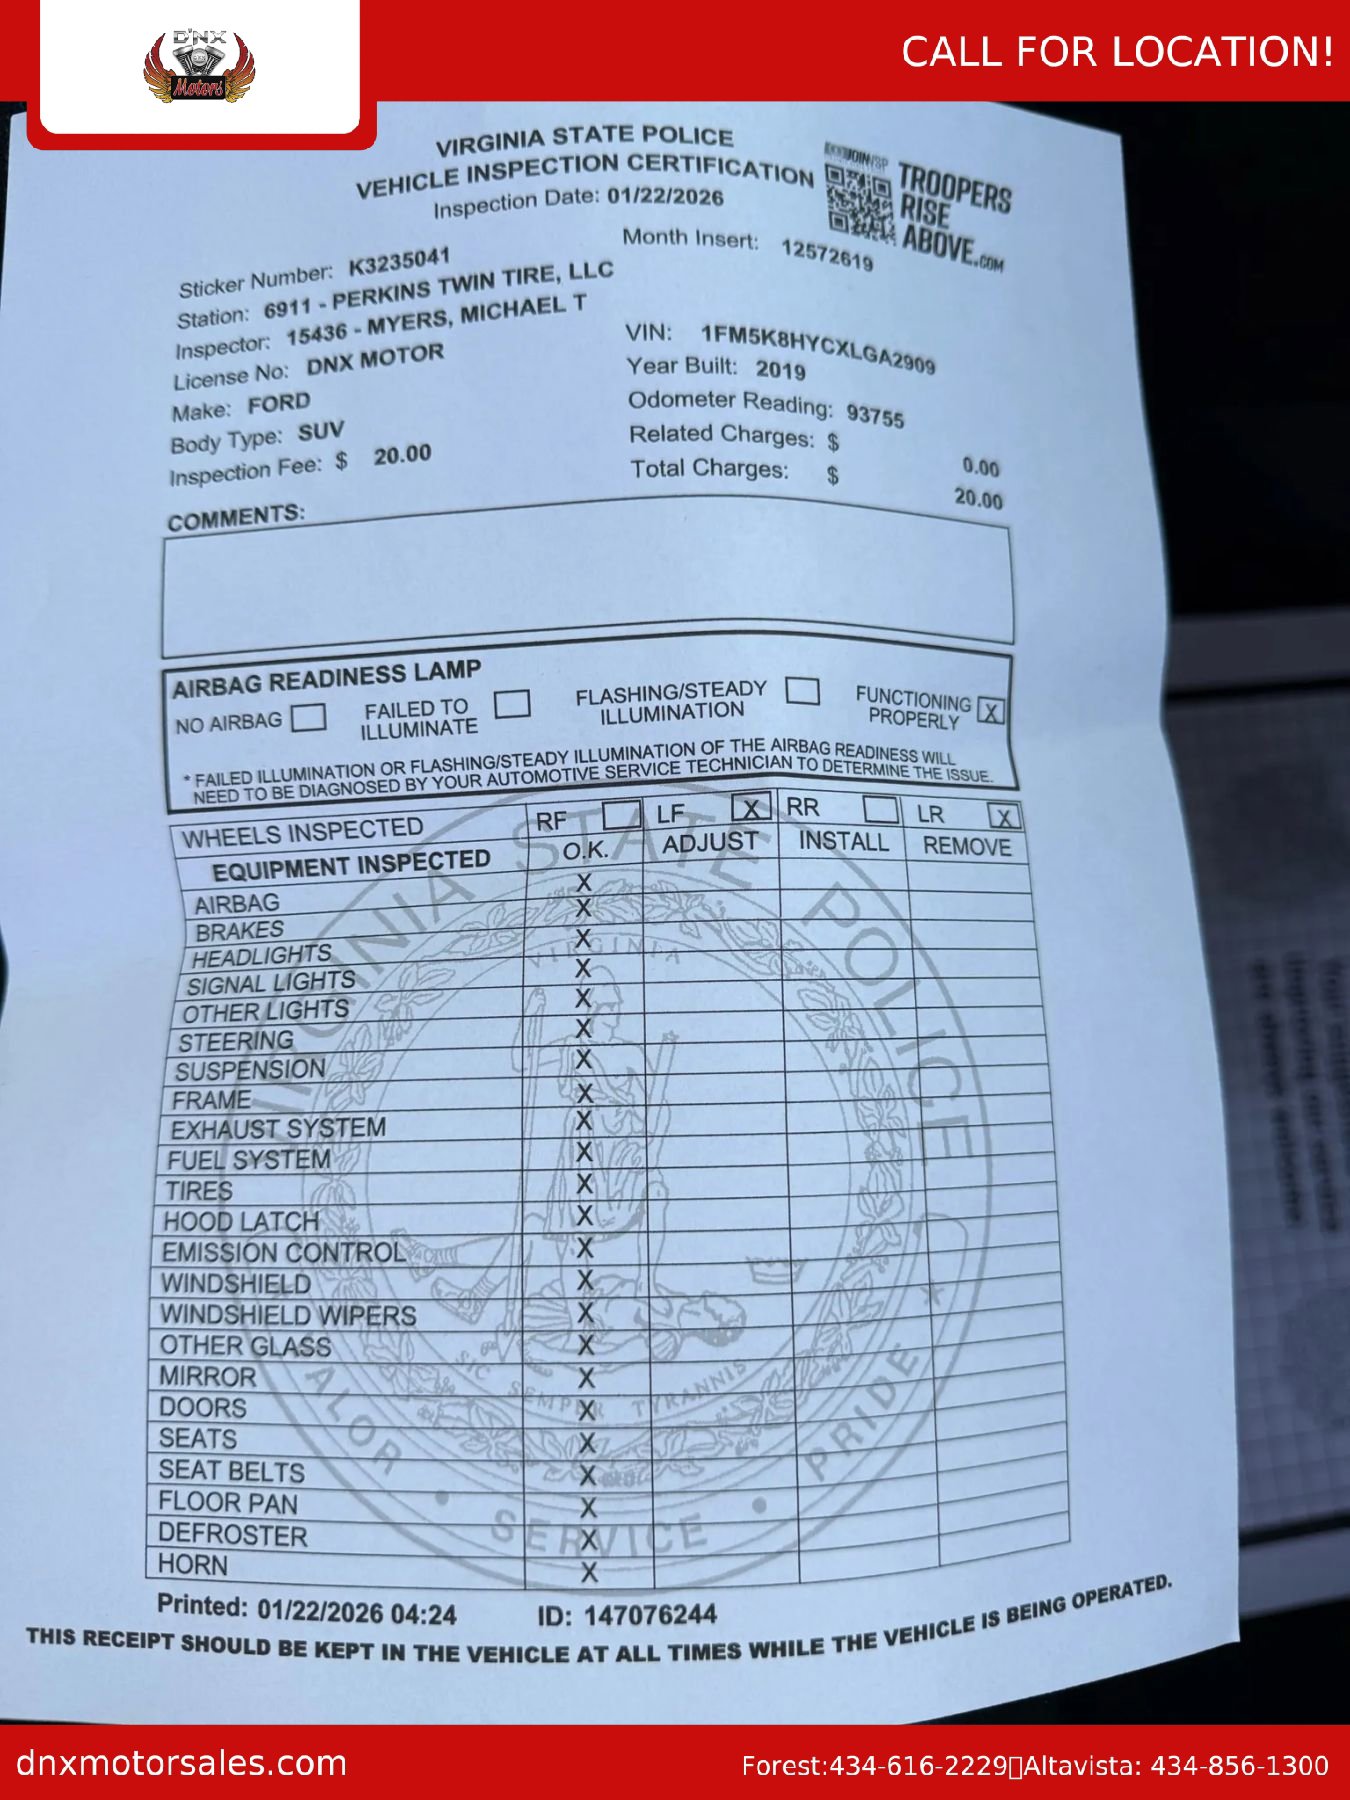 D'NX
Motors
CALL FOR LOCATION!
VIRGINIA STATE POLICE
VEHICLE INSPECTION CERTIFICATION
Inspection Date: 01/22/2026
JOIN VSP
TROOPERS
RISE
ABOVE.COM
Sticker Number: K3235041
Month Insert: 12572619
Station: 6911 - PERKINS TWIN TIRE, LLC
Inspector: 15436 - MYERS, MICHAEL T
License No: DNX MOTOR
VIN: 1FM5K8HYCXLGA2909
Make: FORD
Year Built: 2019
Body Type: SUV
Odometer Reading: 93755
Inspection Fee: $ 20.00
Related Charges: $ 0.00
Total Charges: $ 20.00
COMMENTS:
AIRBAG READINESS LAMP
NO AIRBAG
FAILED TO ILLUMINATE
FLASHING/STEADY ILLUMINATION
FUNCTIONING PROPERLY X
* FAILED ILLUMINATION OR FLASHING/STEADY ILLUMINATION OF THE AIRBAG READINESS WILL
NEED TO BE DIAGNOSED BY YOUR AUTOMOTIVE SERVICE TECHNICIAN TO DETERMINE THE ISSUE.
WHEELS INSPECTED RF LF X RR LR X
EQUIPMENT INSPECTED O.K. ADJUST INSTALL REMOVE
AIRBAG X
BRAKES X
HEADLIGHTS X
SIGNAL LIGHTS X
OTHER LIGHTS X
STEERING X
SUSPENSION X
FRAME X
EXHAUST SYSTEM X
FUEL SYSTEM X
TIRES X
HOOD LATCH X
EMISSION CONTROL X
WINDSHIELD X
WINDSHIELD WIPERS X
OTHER GLASS X
MIRROR X
DOORS X
SEATS X
SEAT BELTS X
FLOOR PAN X
DEFROSTER X
HORN X
VIRGINIA STATE POLICE
VIRGINIA
SIC SEMPER TYRANNIS
VALOR • SERVICE • PRIDE
Printed: 01/22/2026 04:24 ID: 147076244
THIS RECEIPT SHOULD BE KEPT IN THE VEHICLE AT ALL TIMES WHILE THE VEHICLE IS BEING OPERATED.
dnxmotorsales.com
Forest:434-616-2229 Altavista: 434-856-1300